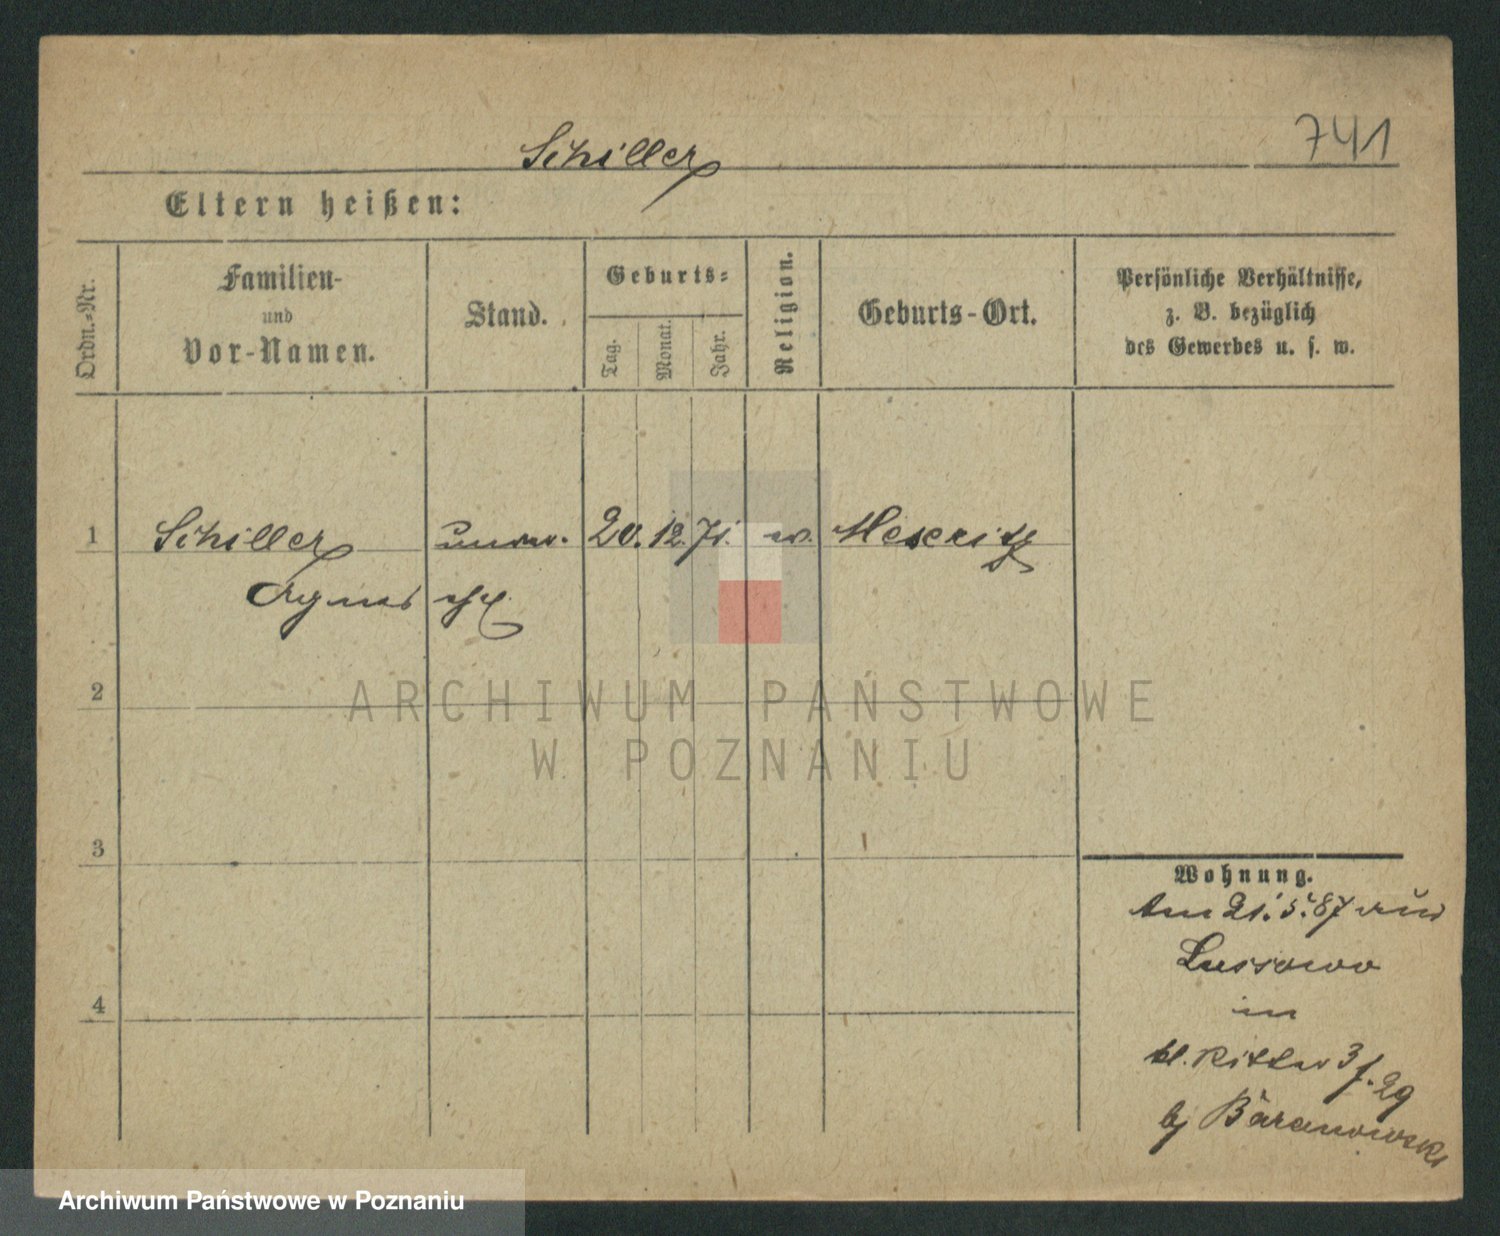 741
Schiller
Eltern heißen:
Ordn.-Nr.
Familien-
und
Vor-Namen.
Stand.
Geburts-
Tag.
Monat.
Jahr.
Religion.
Geburts-Ort.
Persönliche Verhältnisse,
z. B. bezüglich
des Gewerbes u. s. w.
1 Schiller 20. 12. 71. Meseritz
Agnes
2
ARCHIWUM PAŃSTWOWE
W POZNANIU
3
Wohnung.
21. 5. 87
Lussowo
in
4
kl. Ritter 3
29
Baranowski
Archiwum Państwowe w Poznaniu